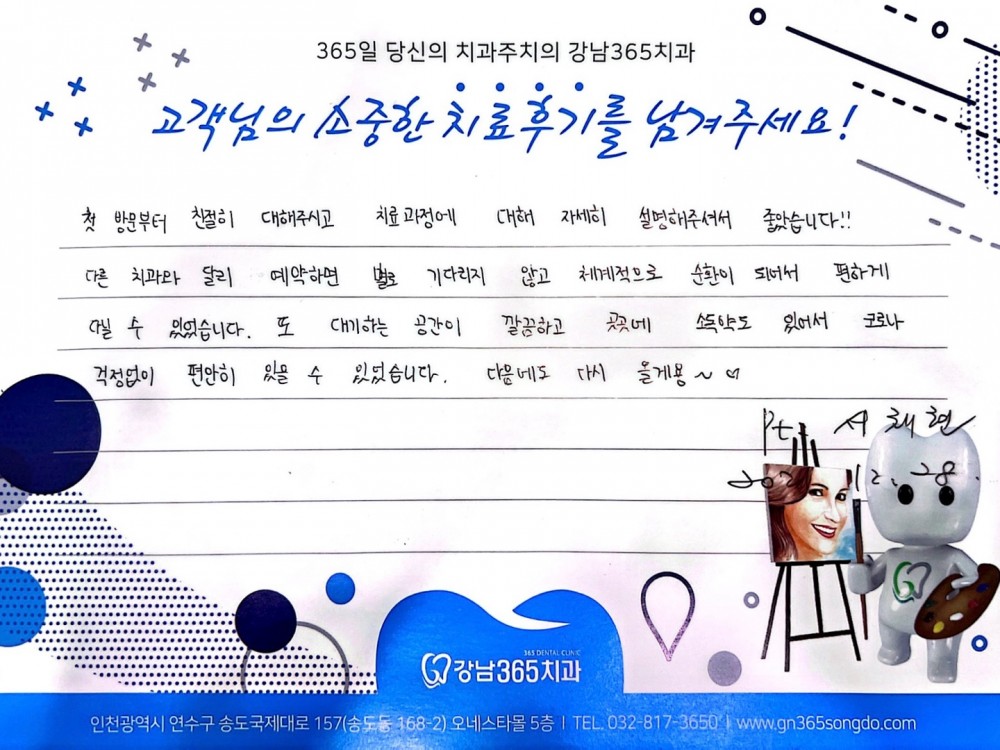 365일 당신의 치과주치의 강남365치과
고객님의 소중한 치료후기를 남겨주세요!
첫 방문부터 친절히 대해주시고 치료과정에 대해 자세히 설명해주셔서 좋았습니다!!
다른 치과와 달리 예약하면 별로 기다리지 않고 체계적으로 순환이 되어서 편하게
다닐 수 있었습니다. 또 대기하는 공간이 깔끔하고 곳곳에 소독약도 있어서 코로나
걱정없이 편안히 있을 수 있었습니다. 다음에도 다시 올게용~ ♡
Pt. 서채현
12. 28.
365 DENTAL CLINIC
강남365치과
인천광역시 연수구 송도국제대로 157(송도동 168-2) 오네스타몰 5층 | TEL. 032-817-3650 | www.gn365songdo.com